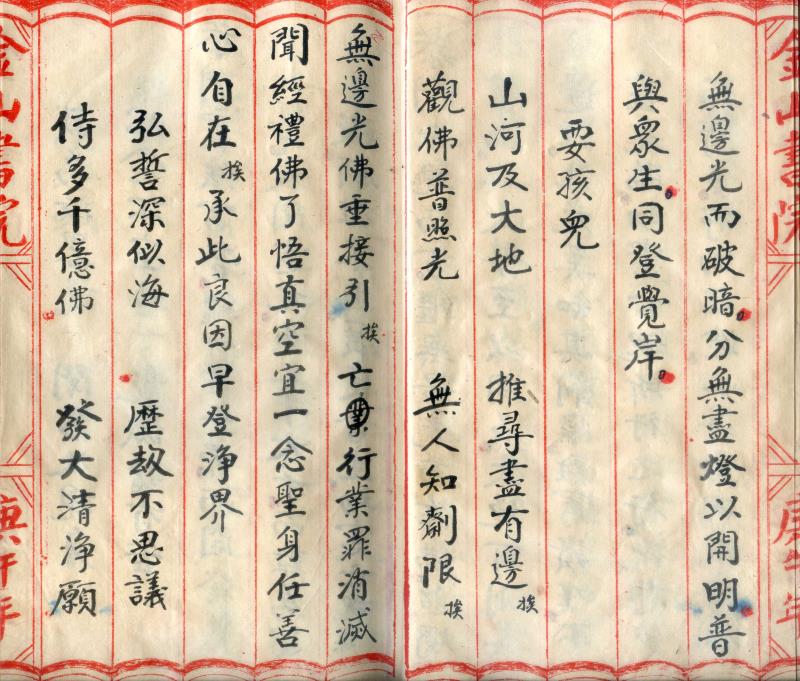 金山書院
庚午年
無邊光而破暗。分無盡燈以開明。普
與眾生。同登覺岸。
耍孩兒
山河及大地 推尋盡有邊挨
觀佛普照光 無人知劑限挨
無邊光佛垂接引挨 亡 行業罪消滅
聞經禮佛了悟真空宜一念聖身任善
心自在挨承此良因早登淨界
弘誓深似海 歷劫不思議
侍多千億佛 發大清淨願
金山書院
庚午年